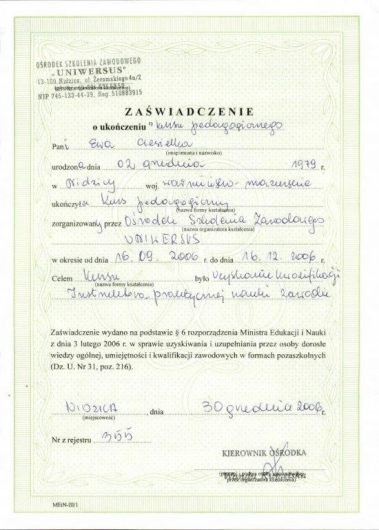 OŚRODEK SZKOLENIA ZAWODOWEGO
„UNIWERSUS"
13-100 Nidzica, ul. Żeromskiego 4a/2
NIP 745-133-44-39, Reg. 510883915
ZAŚWIADCZENIE
o ukończeniu kursu pedagogicznego
Pani Ewa Ciesielka
(imię/imiona i nazwisko)
urodzona dnia 02 grudnia 1979 r.
w Nidzicy woj. warmińsko-mazurskie
ukończyła Kurs pedagogiczny
(nazwa formy kształcenia)
zorganizowany przez Ośrodek Szkolenia Zawodowego
(nazwa organizatora kształcenia)
UNIWERSUS
w okresie od dnia 16. 09. 2006 r. do dnia 16. 12. 2006 r.
Celem Kursu było uzyskanie kwalifikacji
(nazwa formy kształcenia)
Instruktora praktycznej nauki zawodu
Zaświadczenie wydano na podstawie § 6 rozporządzenia Ministra Edukacji i Nauki
z dnia 3 lutego 2006 r. w sprawie uzyskiwania i uzupełniania przez osoby dorosłe
wiedzy ogólnej, umiejętności i kwalifikacji zawodowych w formach pozaszkolnych
(Dz. U. Nr 31, poz. 216).
NIDZICA, dnia 30 grudnia 2006 r.
(miejscowość)
Nr z rejestru 355
KIEROWNIK OŚRODKA
MEiN-III/1